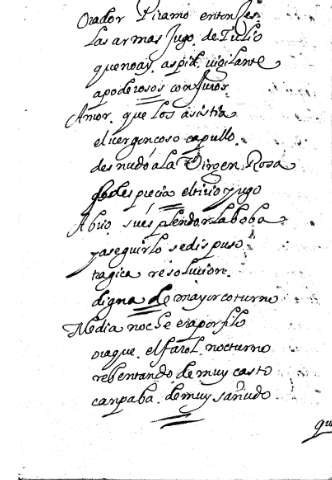 Orador Piramo entonses.
las armas Jugo. de Tulio
que no ay aspid. vigilante
a poderosos conjuros
Amor. que los asistia
el vergonsoso capullo.
desnudó a la Virgen Rosa
desprecia el tirio y jugo
Abrio su esplendor la boba
y a seguirlo se dispuso
tragica resolucion.
digna de mayor coturno
Media noche era por filo
el farol. nocturno
rebentando de muy casto
canpaba. de muy sañudo.
qu